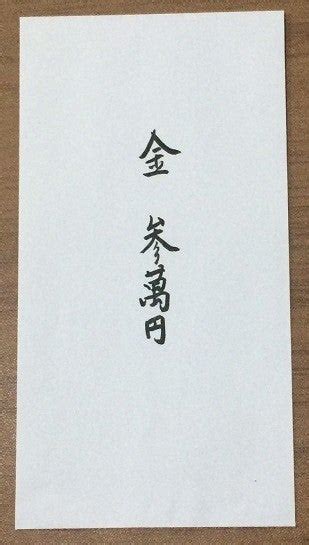 金 参萬円